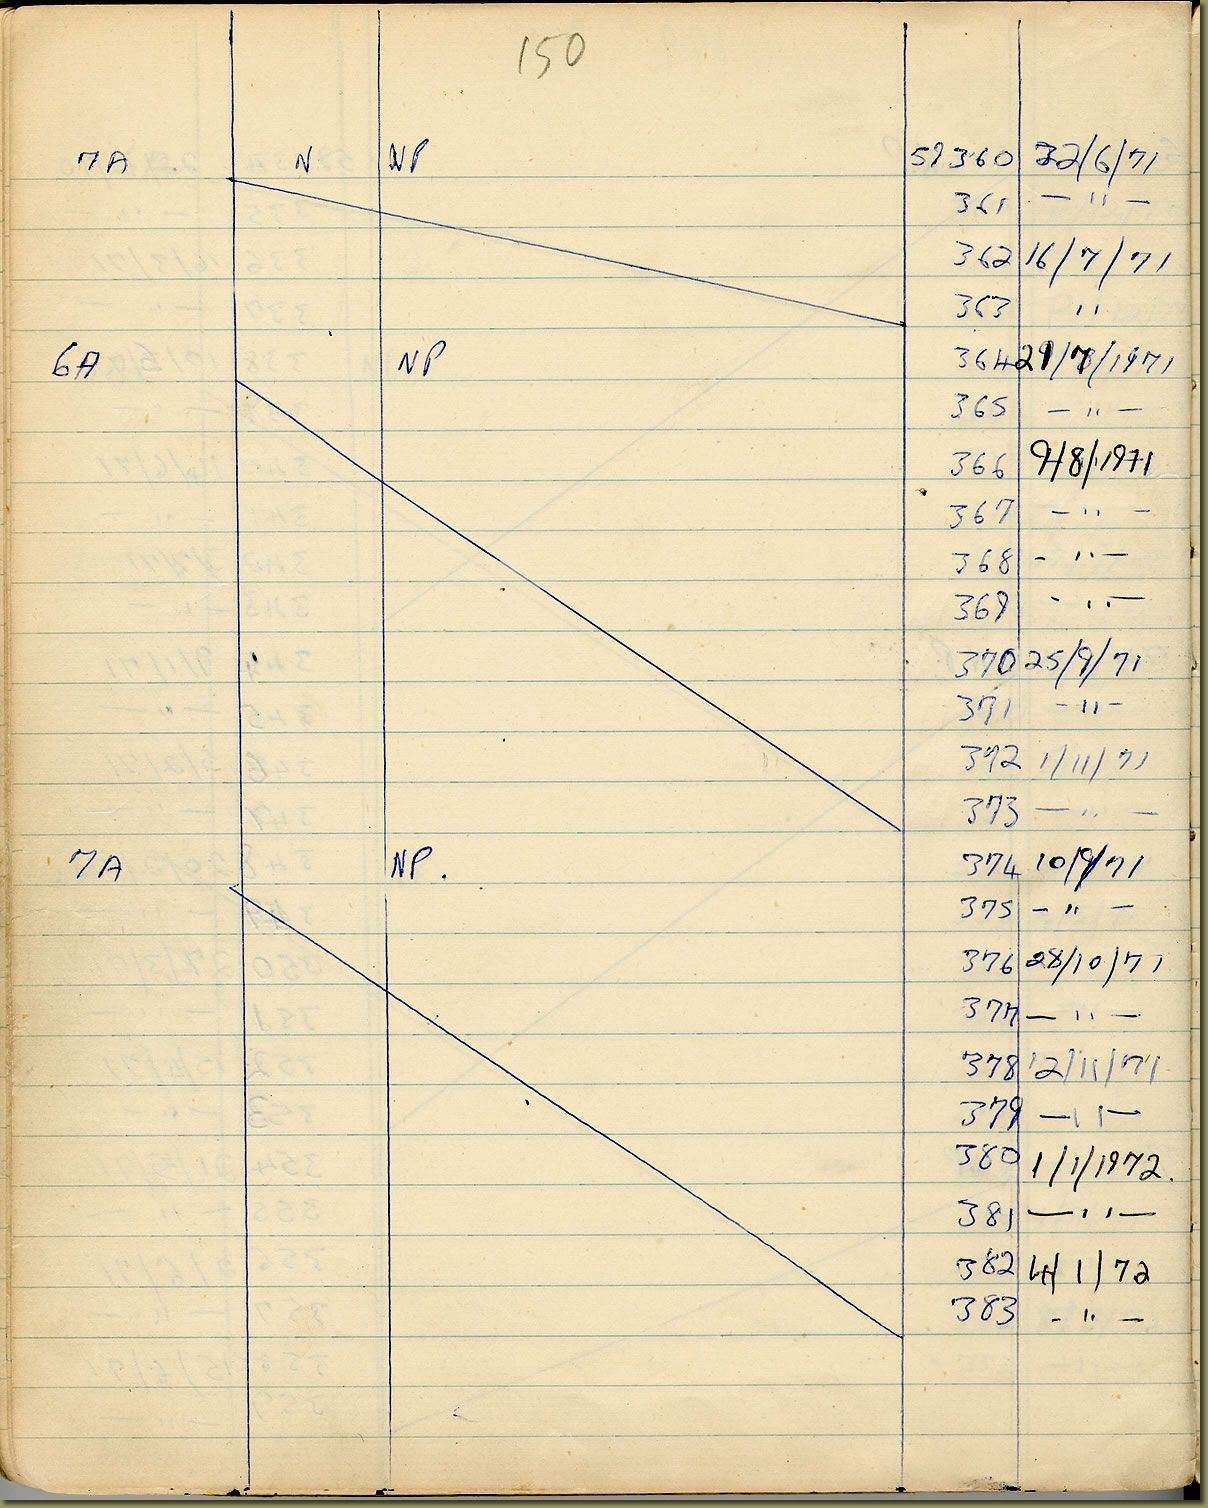 150
7A N NP 57360 22/6/71
361 — " —
362 16/7/71
363 "
6A NP 364 29/7/1971
365 — " —
366 9/8/1971
367 — " —
368 - " —
369 - " —
370 25/9/71
371 - " -
372 1/11/71
373 — " —
7A NP. 374 10/9/71
375 — " —
376 28/10/71
377 — " —
378 12/11/71
379 — " —
380 1/1/1972.
381 — " —
382 4/1/72
383 - " —